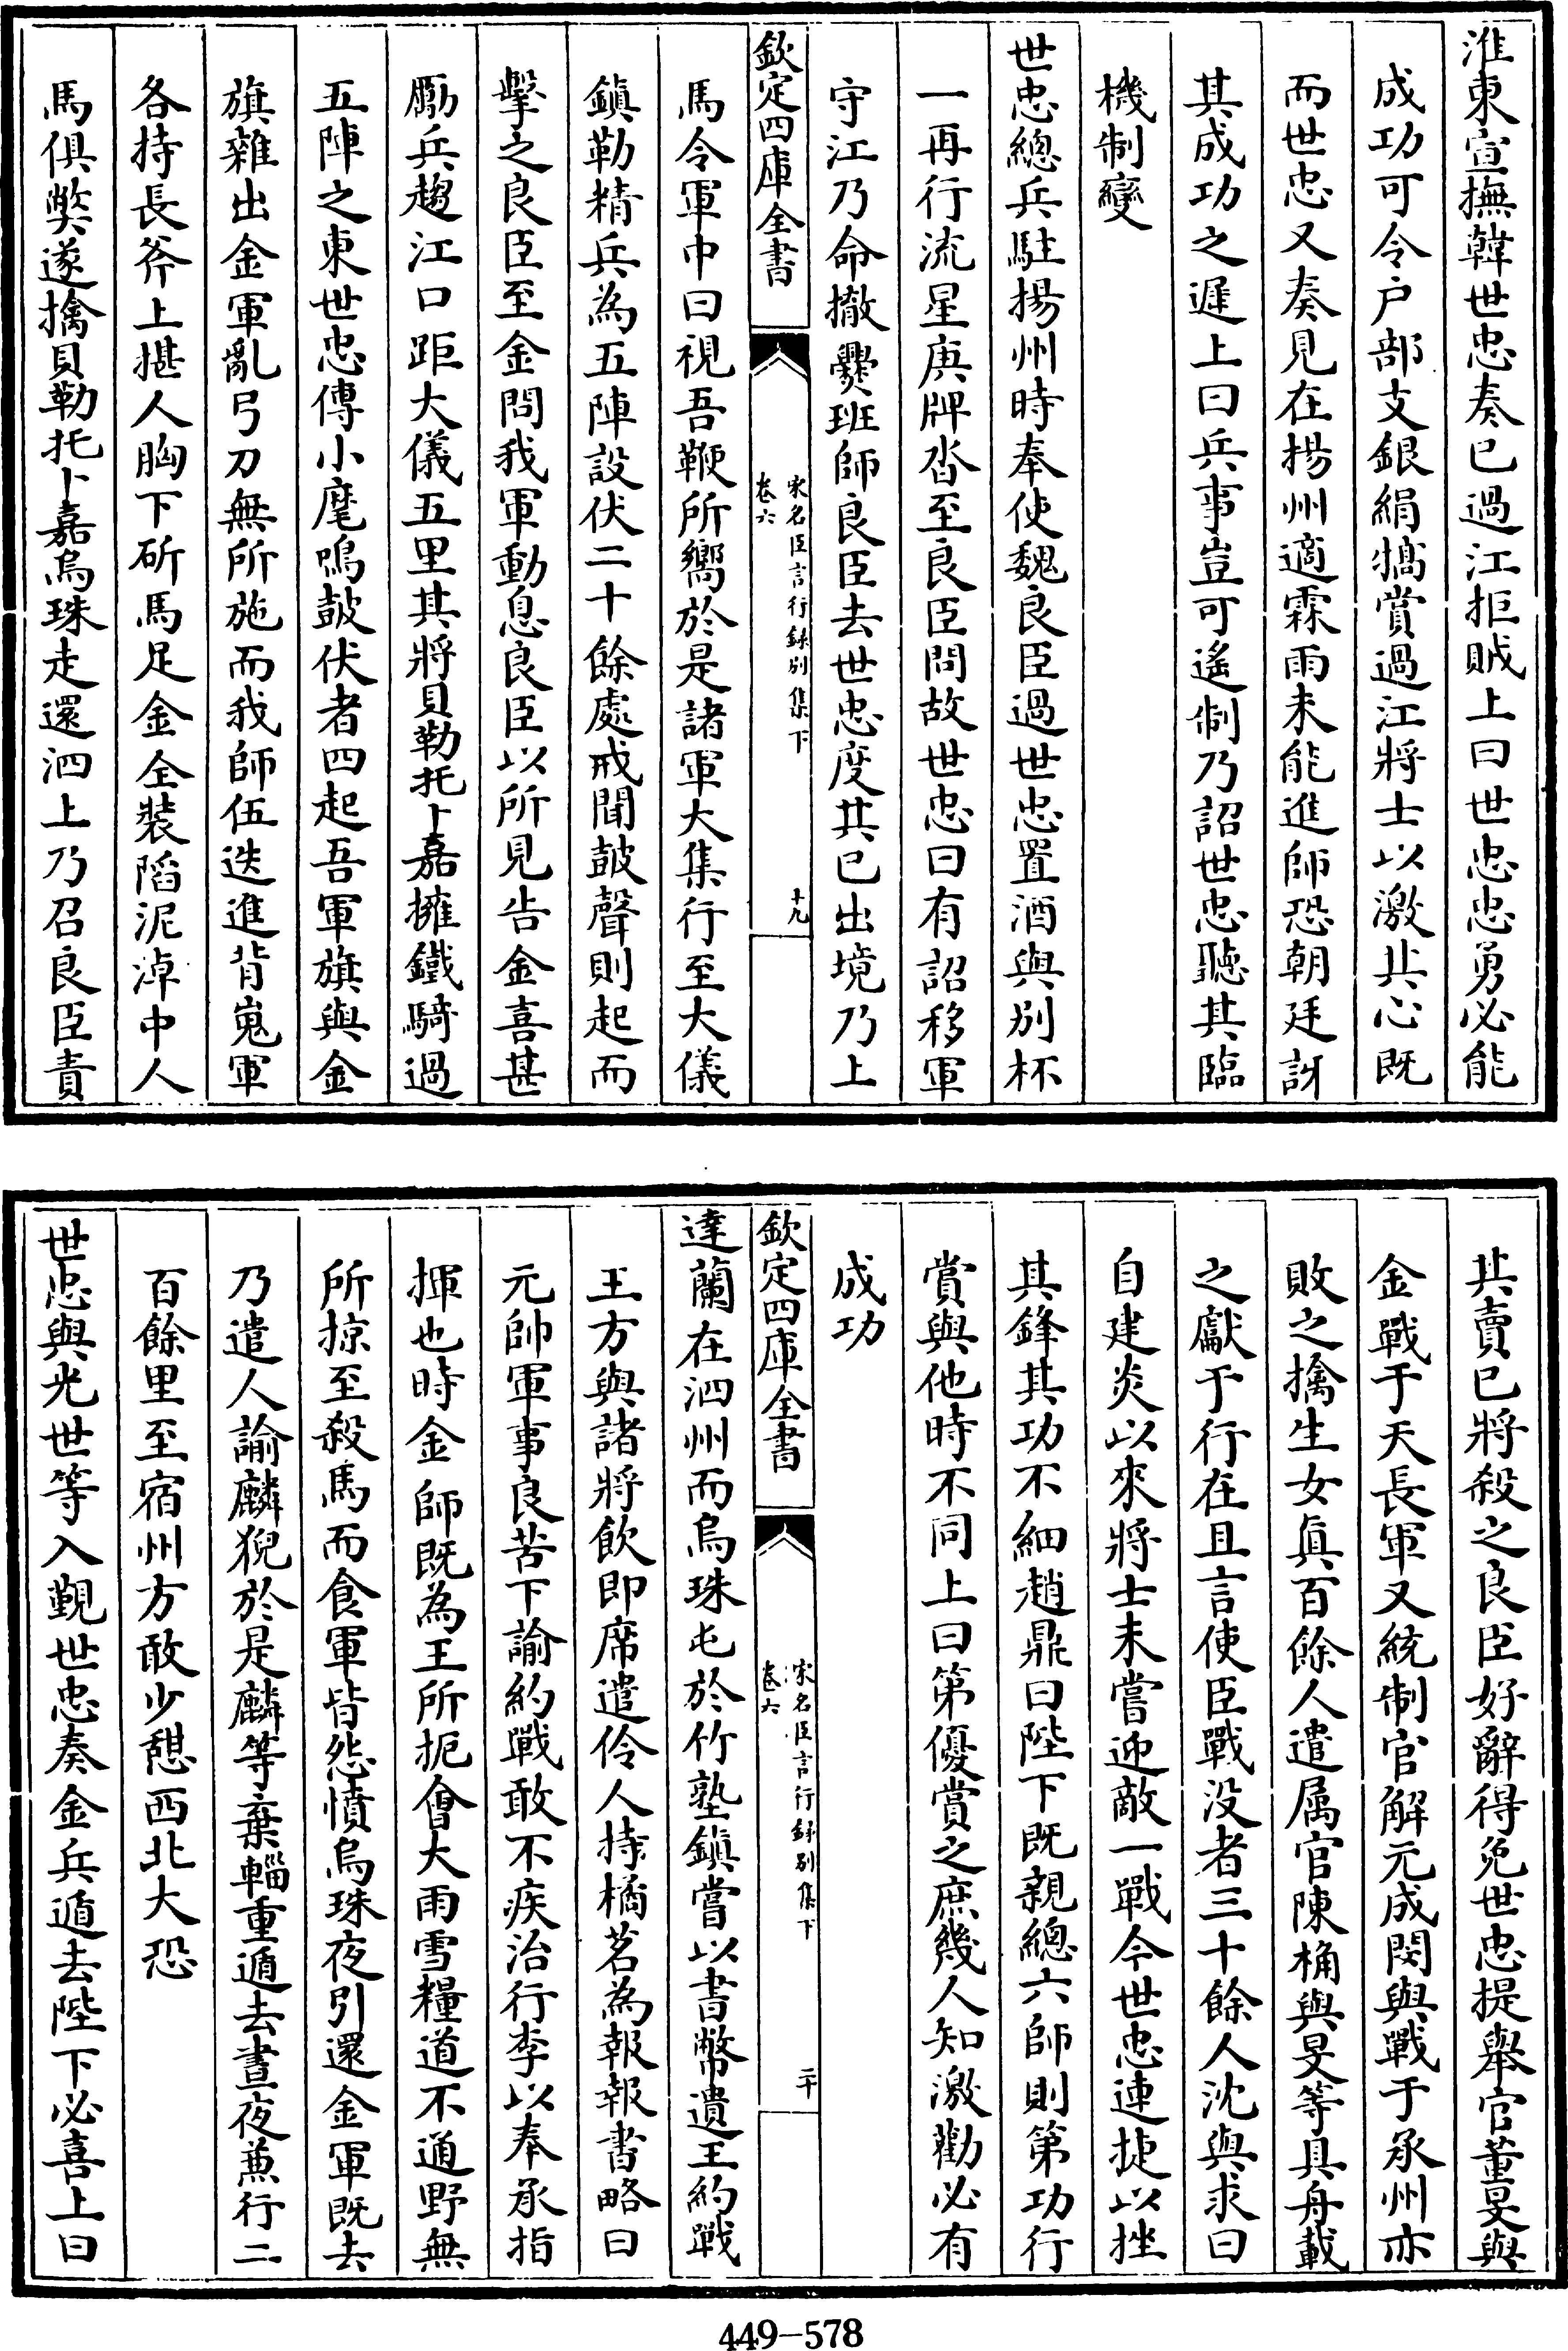 淮東宣撫韓世忠奏已過江拒賊上曰世忠忠勇必能
成功可令户部支銀絹犒賞過江將士以激其心既
而世忠又奏見在揚州適霖雨未能進師恐朝廷訝
其成功之遲上曰兵事豈可遙制乃詔世忠聽其臨
機制變
世忠總兵駐揚州時奉使魏良臣過世忠置酒與别杯
一再行流星庚牌沓至良臣問故世忠曰有詔移軍
守江乃命撤爨班師良臣去世忠度其已出境乃上
欽定四庫全書
宋名臣言行録别集下
卷六
十九
馬令軍中曰視吾鞭所嚮於是諸軍大集行至大儀
鎮勒精兵為五陣設伏二十餘處戒聞鼓聲則起而
擊之良臣至金問我軍動息良臣以所見告金喜甚
勵兵趨江口距大儀五里其將貝勒托卜嘉擁鐵騎過
五陣之東世忠傳小麾鳴鼓伏者四起吾軍旗與金
旗雜出金軍亂弓刀無所施而我師伍迭進背嵬軍
各持長斧上揕人胸下斫馬足金全裝陷泥淖中人
馬俱獘遂擒貝勒托卜嘉烏珠走還泗上乃召良臣責
其賣已將殺之良臣好辭得免世忠提舉官董旻與
金戰于天長軍又統制官解元成閔與戰于承州亦
敗之擒生女真百餘人遣属官陳桷與旻等具舟載
之獻于行在且言使臣戰没者三十餘人沈與求曰
自建炎以來將士未嘗迎敵一戰今世忠連捷以挫
其鋒其功不細趙鼎曰陛下既親總六師則第功行
賞與他時不同上曰第優賞之庶幾人知激勸必有
成功
欽定四庫全書
宋名臣言行録别集下
卷六
二十
達蘭在泗州而烏珠屯於竹塾鎮嘗以書幣遺王約戰
王方與諸將飲即席遣伶人持橘茗為報報書略曰
元帥軍事良苦下諭約戰敢不疾治行李以奉承指
揮也時金師既為王所扼會大雨雪糧道不通野無
所掠至殺馬而食軍皆怨憤烏珠夜引還金軍既去
乃遣人諭麟猊於是麟等棄輜重遁去晝夜兼行二
百餘里至宿州方敢少憇西北大恐
世忠與光世等入覲世忠奏金兵遁去陛下必喜上曰
449-578